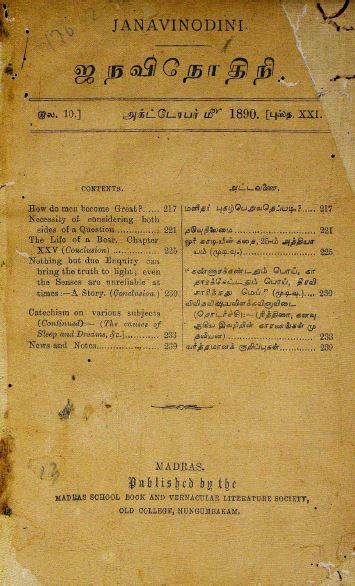 JANAVINODINI.
ஜநவிநோதினி.
இல. 10.] அக்டோபர் மீ 1890. [புஸ்த. XXI.
CONTENTS.
How do men become Great?..... 217
Necessity of considering both
sides of a Question............ 221
The Life of a Bear. Chapter
XXV (Conclusion) ............ 225
Nothing but due Enquiry can
bring the truth to light; even
the Senses are unreliable at
times:—A Story. (Conclusion.) 230
Catechism on various subjects
(Continued):— (The causes of
Sleep and Dreams, &c.)........ 233
News and Notes.................. 239
அட்டவணை.
மனிதர் புகழ்பெறுவதெப்படி?..... 217
221
ஓர் கரடியின் கதை, 25-ம் அத்தியா
யம் (முடிவு.)................ 225
"கண்ணாக்கண்டதும் பொய், கா
தாரக்கேட்டதும் பொய், திரவி
சாரித்தது மெய்." (முடிவு.).... 230
விவிதவிஷயவினாவிடை
(தொடர்ச்சி):—(நித்திரை, கனவு
ஆகிய இவற்றின் காரணங்கள் மு
தலியன) ........................ 233
வர்த்தமானக் குறிப்புகள்............ 239
MADRAS.
Published by the
MADRAS SCHOOL BOOK AND VERNACULAR LITERATURE SOCIETY,
OLD COLLEGE, NUNGUMBAKAM.